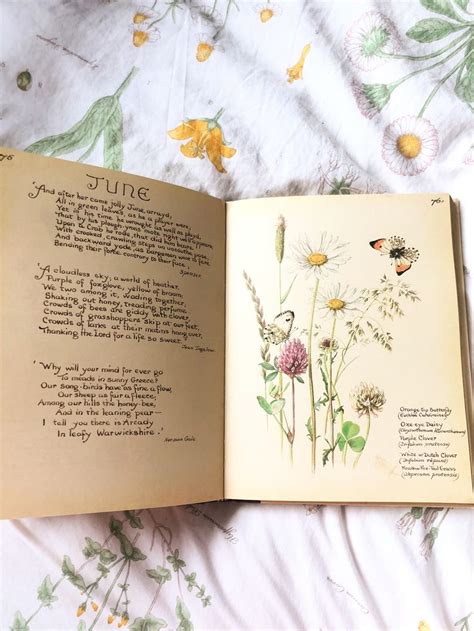 JUNE
'And after her came jolly June, arrayd
All in green leaves, as he a player were,
Yet in his time he wrought as well as playd,
That by his plough-yrons mote right well appeare
Upon a Crab he rode that did him beare
With crooked, crawling steps an uncouthe pase,
And backward yode, as bargemen wont to fare
Bending their force contrary to their face,
Spenser.
'A cloudless sky; a world of heather,
Purple of foxglove, yellow of broom,
We two among it, wading together,
Shaking out honey, treading perfume.
Crowds of bees are giddy with clover
Crowds of grasshoppers skip at our feet.
Crowds of larks at their matins hang over,
Thanking the Lord for a life so sweet.
Jean Ingelow
'Why will your mind for ever go
To meads in sunny Greece?
Our song-birds have as fine a flow,
Our sheep as fair a fleece,
Among our hills the honey-bee,
And in the leaning pear—
I tell you there is Arcady
In leafy Warwickshire.'
Norman Gale
76.
Orange Tip Butterfly
Oxe-eye Daisy
Purple Clover
White or Dutch Clover